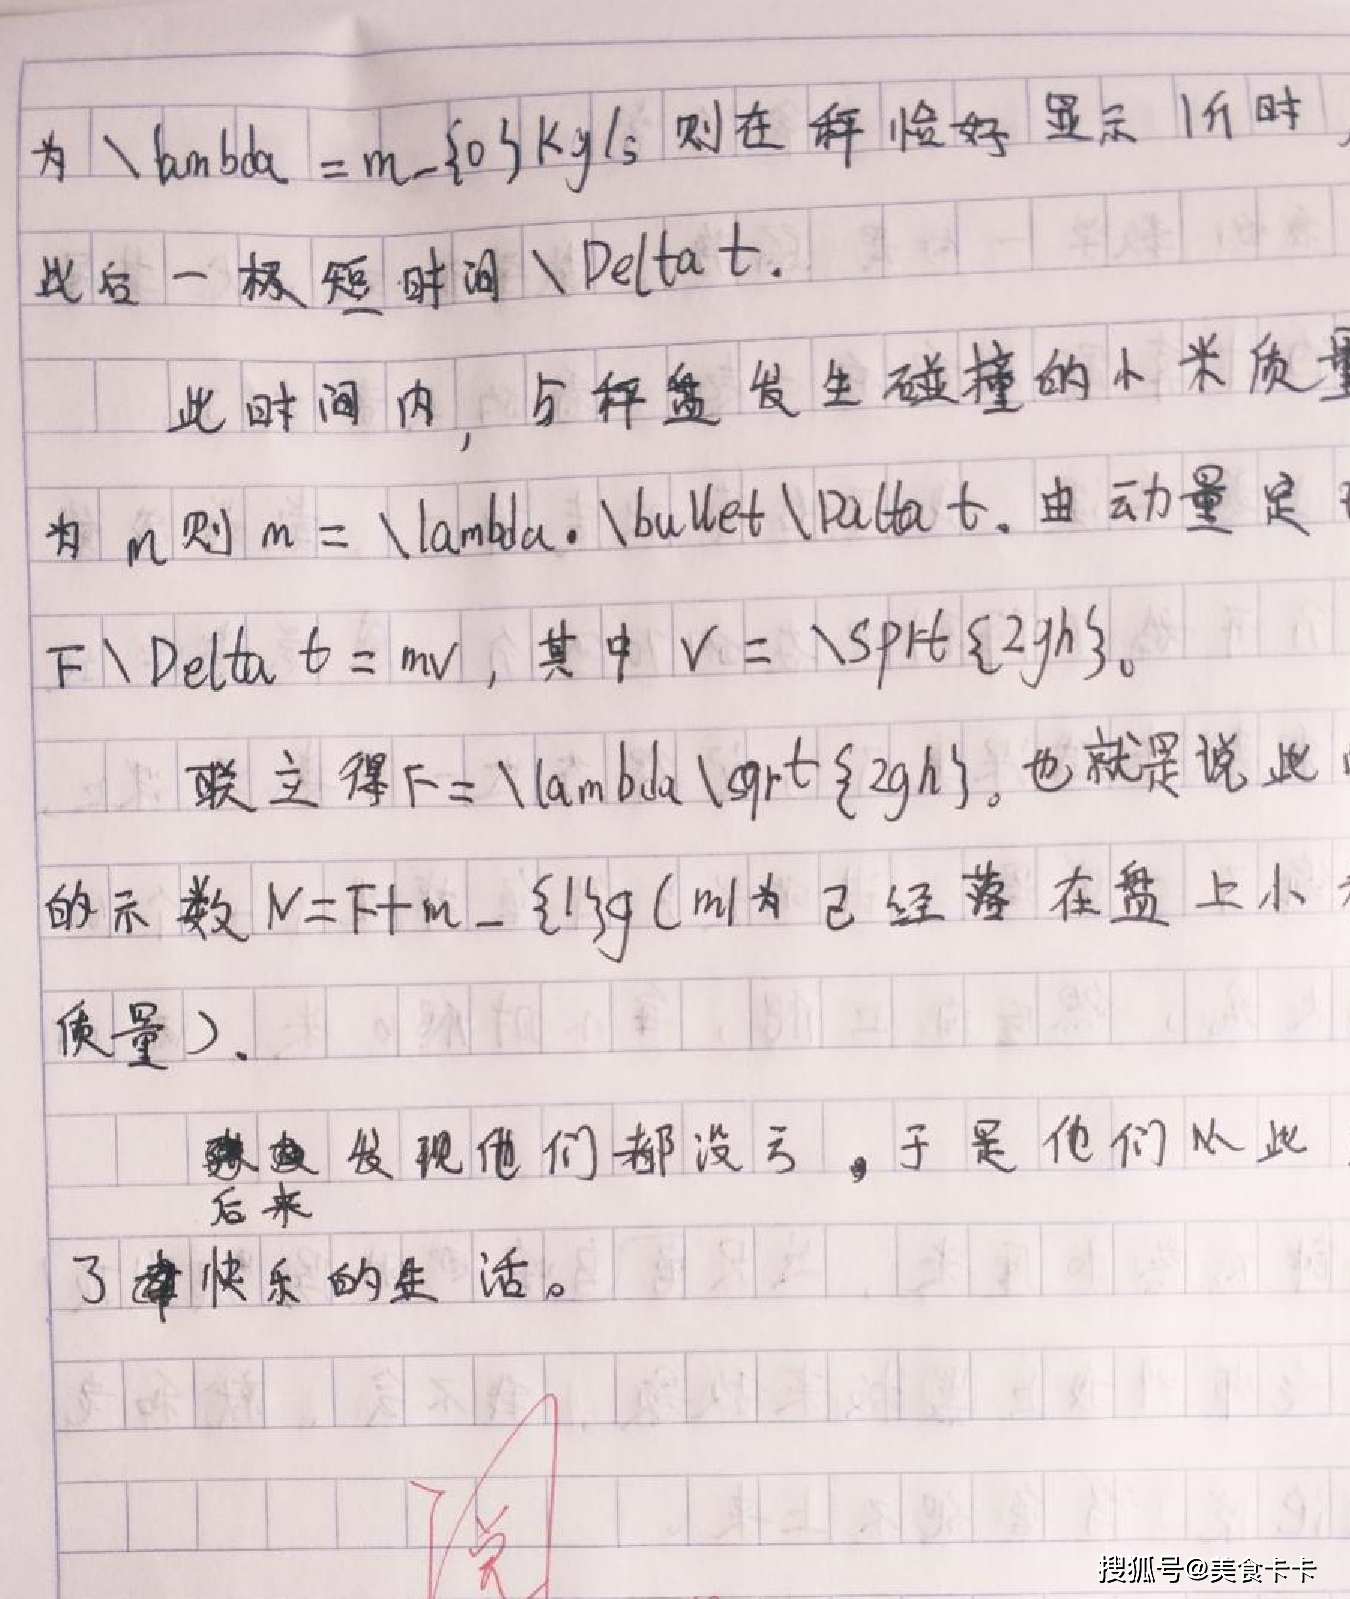 为 \lambda = m_{0}Kg/s 则在秤恰好显示1斤时,
此后一极短时间\Delta t.
此时间内,与秤盘发生碰撞的小米质量
为m则m=\lambda.\bullet\Dalta t.由动量定
F\Delta t=mv,其中V=\sprt{2gh}。
联立得F=\lambda\sqrt{2gh}。也就是说此
的示数N=F+m_{1}g(m1为已经落在盘上小
质量).
发现他们都没亏。于是他们从此
后来
了快乐的生活。
阅
搜狐号@美食卡卡